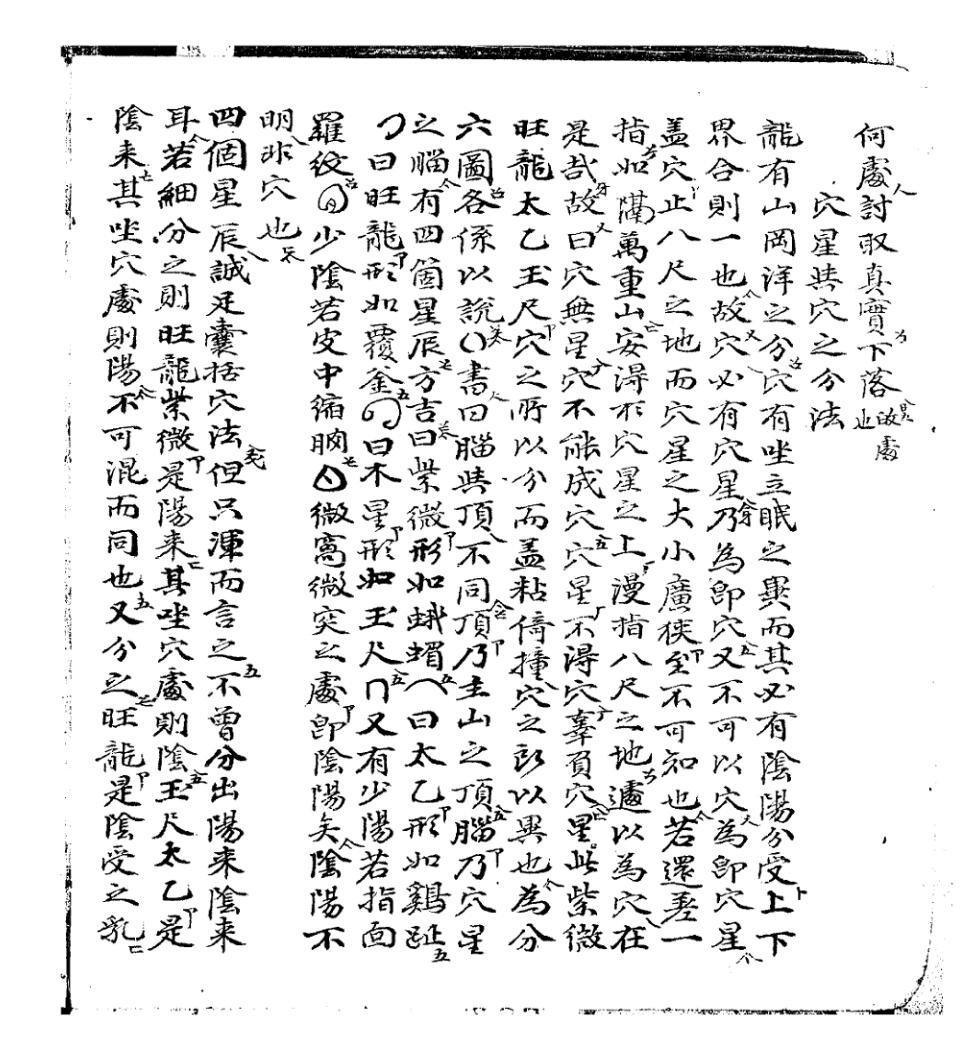 何處討取真實下落也故處
穴星與穴之分法
龍有山岡洋之分穴有坐立眠之異而其必有陰陽分受上下
界合則一也故穴必有穴星乃為卽穴又不可以穴為卽穴星
盖穴止八尺之地而穴星之大小廣狹至不可知也若還差一
指如隔萬重山安淂於穴星之上漫指八尺之地遽以為穴在
是哉故曰穴無星穴不能成穴穴星不淂穴辜負穴星此紫微
旺龍太乙玉尺穴之所以分而盖粘倚撞穴之所以異也為分
六圖各係以說書曰腦與頂不同頂乃主山之頂腦乃穴星
之腦有四箇星辰方吉曰紫微形如蛾蝞曰太乙形如鷄距
曰旺龍形如覆釜曰木星形如玉尺又有少陽若指面
羅紋少陰若皮中縮朒微窩微突之處卽陰陽矣陰陽不
明非穴也
四個星辰誠足囊括穴法但只渾而言之不曾分出陽来陰来
耳若細分之則旺龍紫微是陽来其坐穴處則陰玉尺太乙是
陰来其坐穴處則陽不可混而同也又分之旺龍是陰受之乳